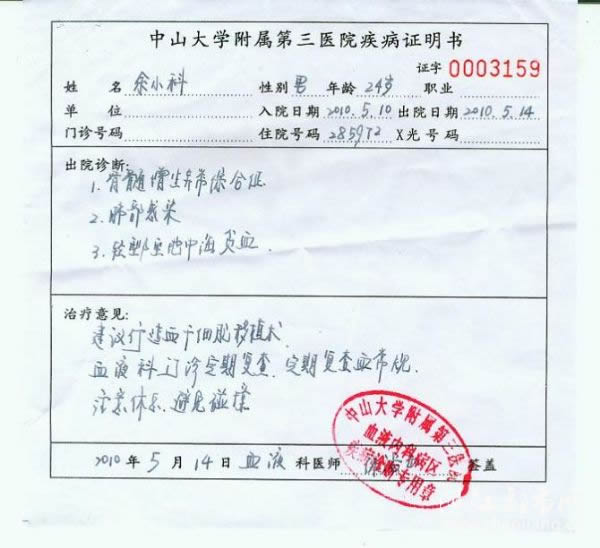 中山大学附属第三医院疾病证明书
证字 0003159
姓 名 余小科 性别 男 年龄 24岁 职业
单 位 入院日期 2010.5.10 出院日期 2010.5.14
门诊号码 住院号码 285972 X光号码
出院诊断:
1.骨髓增生异常综合征
2.肺部感染
3.轻型β地中海贫血.
治疗意见:
建议行造血干细胞移植术.
血液科门诊定期复查.定期复查血常规.
注意休息.避免碰撞
2010 年 5 月 14 日 血液 科医师 签盖
中山大学附属第三医院
血液内科病区
疾病诊断专用章